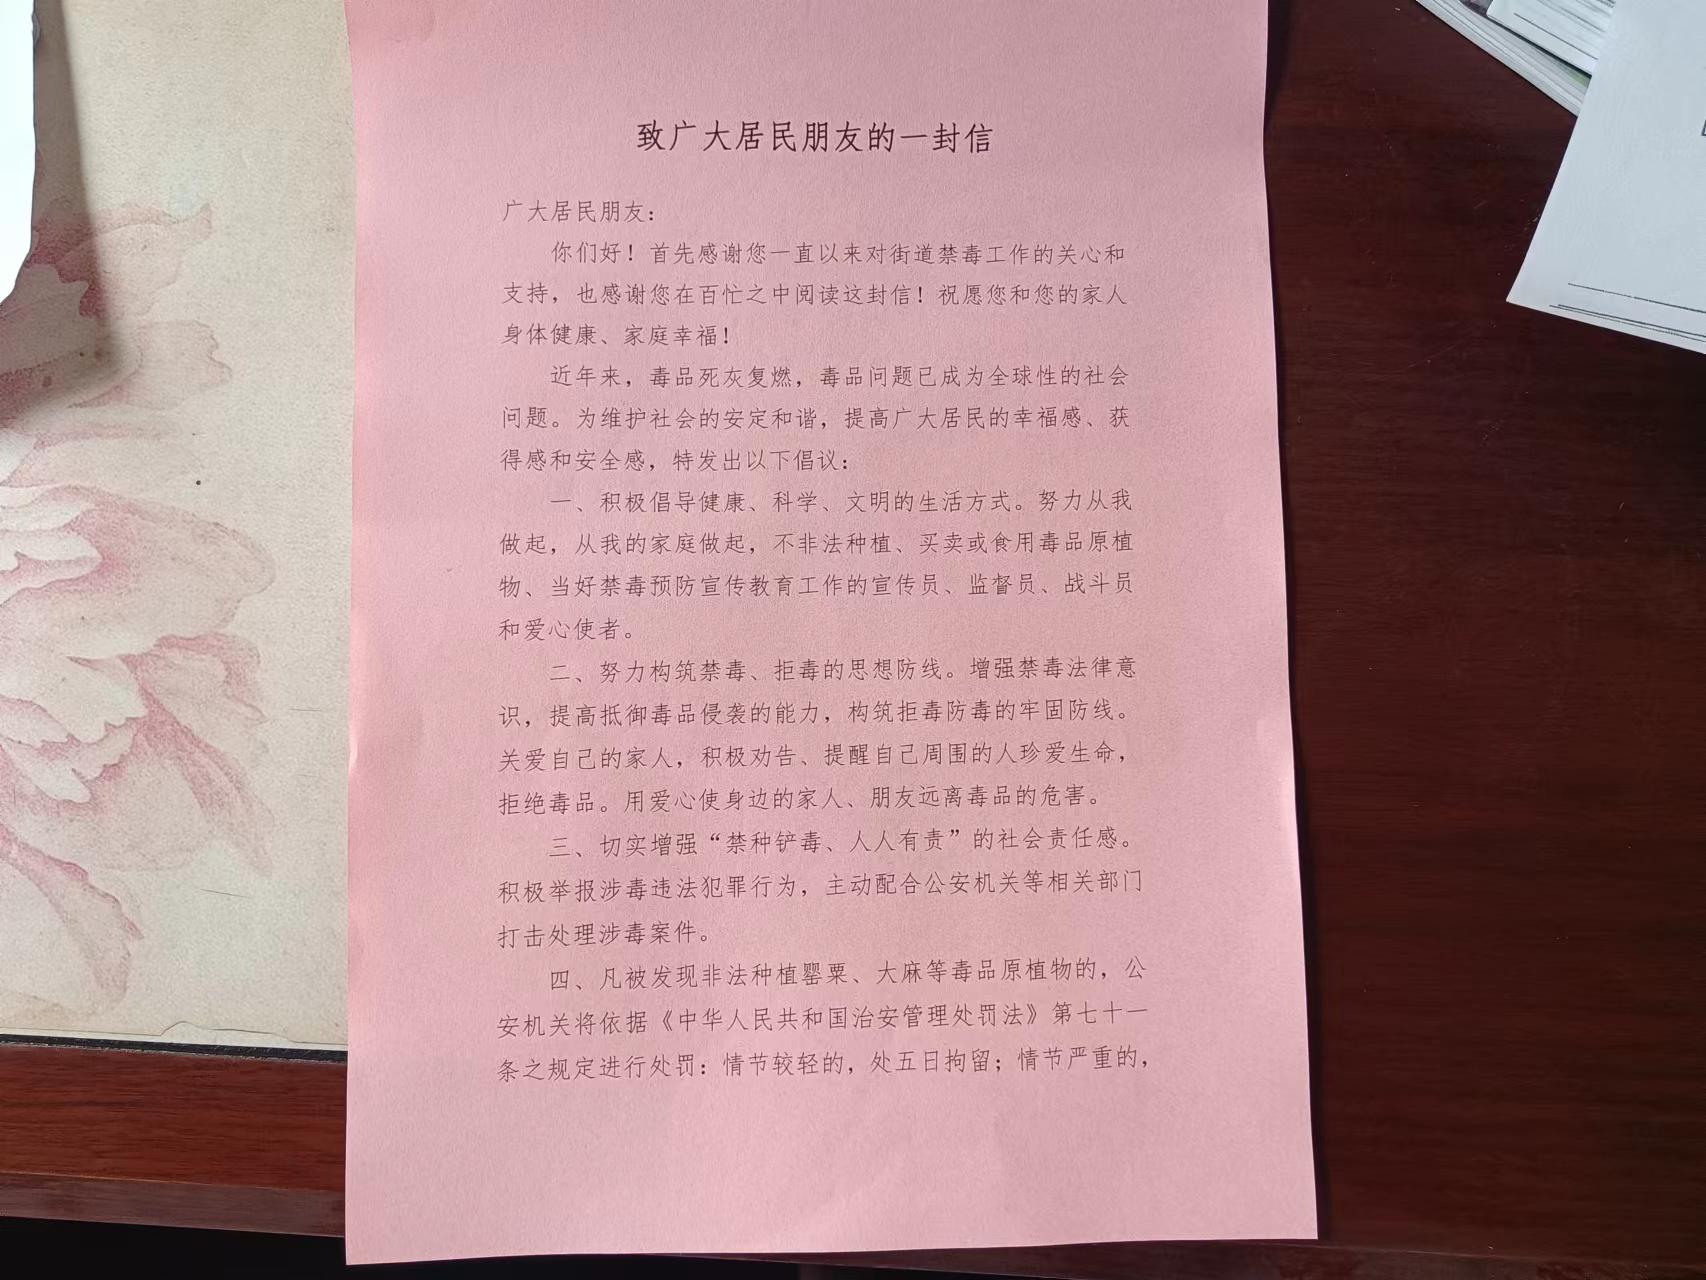 致广大居民朋友的一封信
广大居民朋友：
你们好！首先感谢您一直以来对街道禁毒工作的关心和
支持，也感谢您在百忙之中阅读这封信！祝愿您和您的家人
身体健康、家庭幸福！
近年来，毒品死灰复燃，毒品问题已成为全球性的社会
问题。为维护社会的安定和谐，提高广大居民的幸福感、获
得感和安全感，特发出以下倡议：
一、积极倡导健康、科学、文明的生活方式。努力从我
做起，从我的家庭做起，不非法种植、买卖或食用毒品原植
物、当好禁毒预防宣传教育工作的宣传员、监督员、战斗员
和爱心使者。
二、努力构筑禁毒、拒毒的思想防线。增强禁毒法律意
识，提高抵御毒品侵袭的能力，构筑拒毒防毒的牢固防线。
关爱自己的家人，积极劝告、提醒自己周围的人珍爱生命，
拒绝毒品。用爱心使身边的家人、朋友远离毒品的危害。
三、切实增强“禁种铲毒、人人有责”的社会责任感。
积极举报涉毒违法犯罪行为，主动配合公安机关等相关部门
打击处理涉毒案件。
四、凡被发现非法种植罂粟、大麻等毒品原植物的，公
安机关将依据《中华人民共和国治安管理处罚法》第七十一
条之规定进行处罚：情节较轻的，处五日拘留；情节严重的，